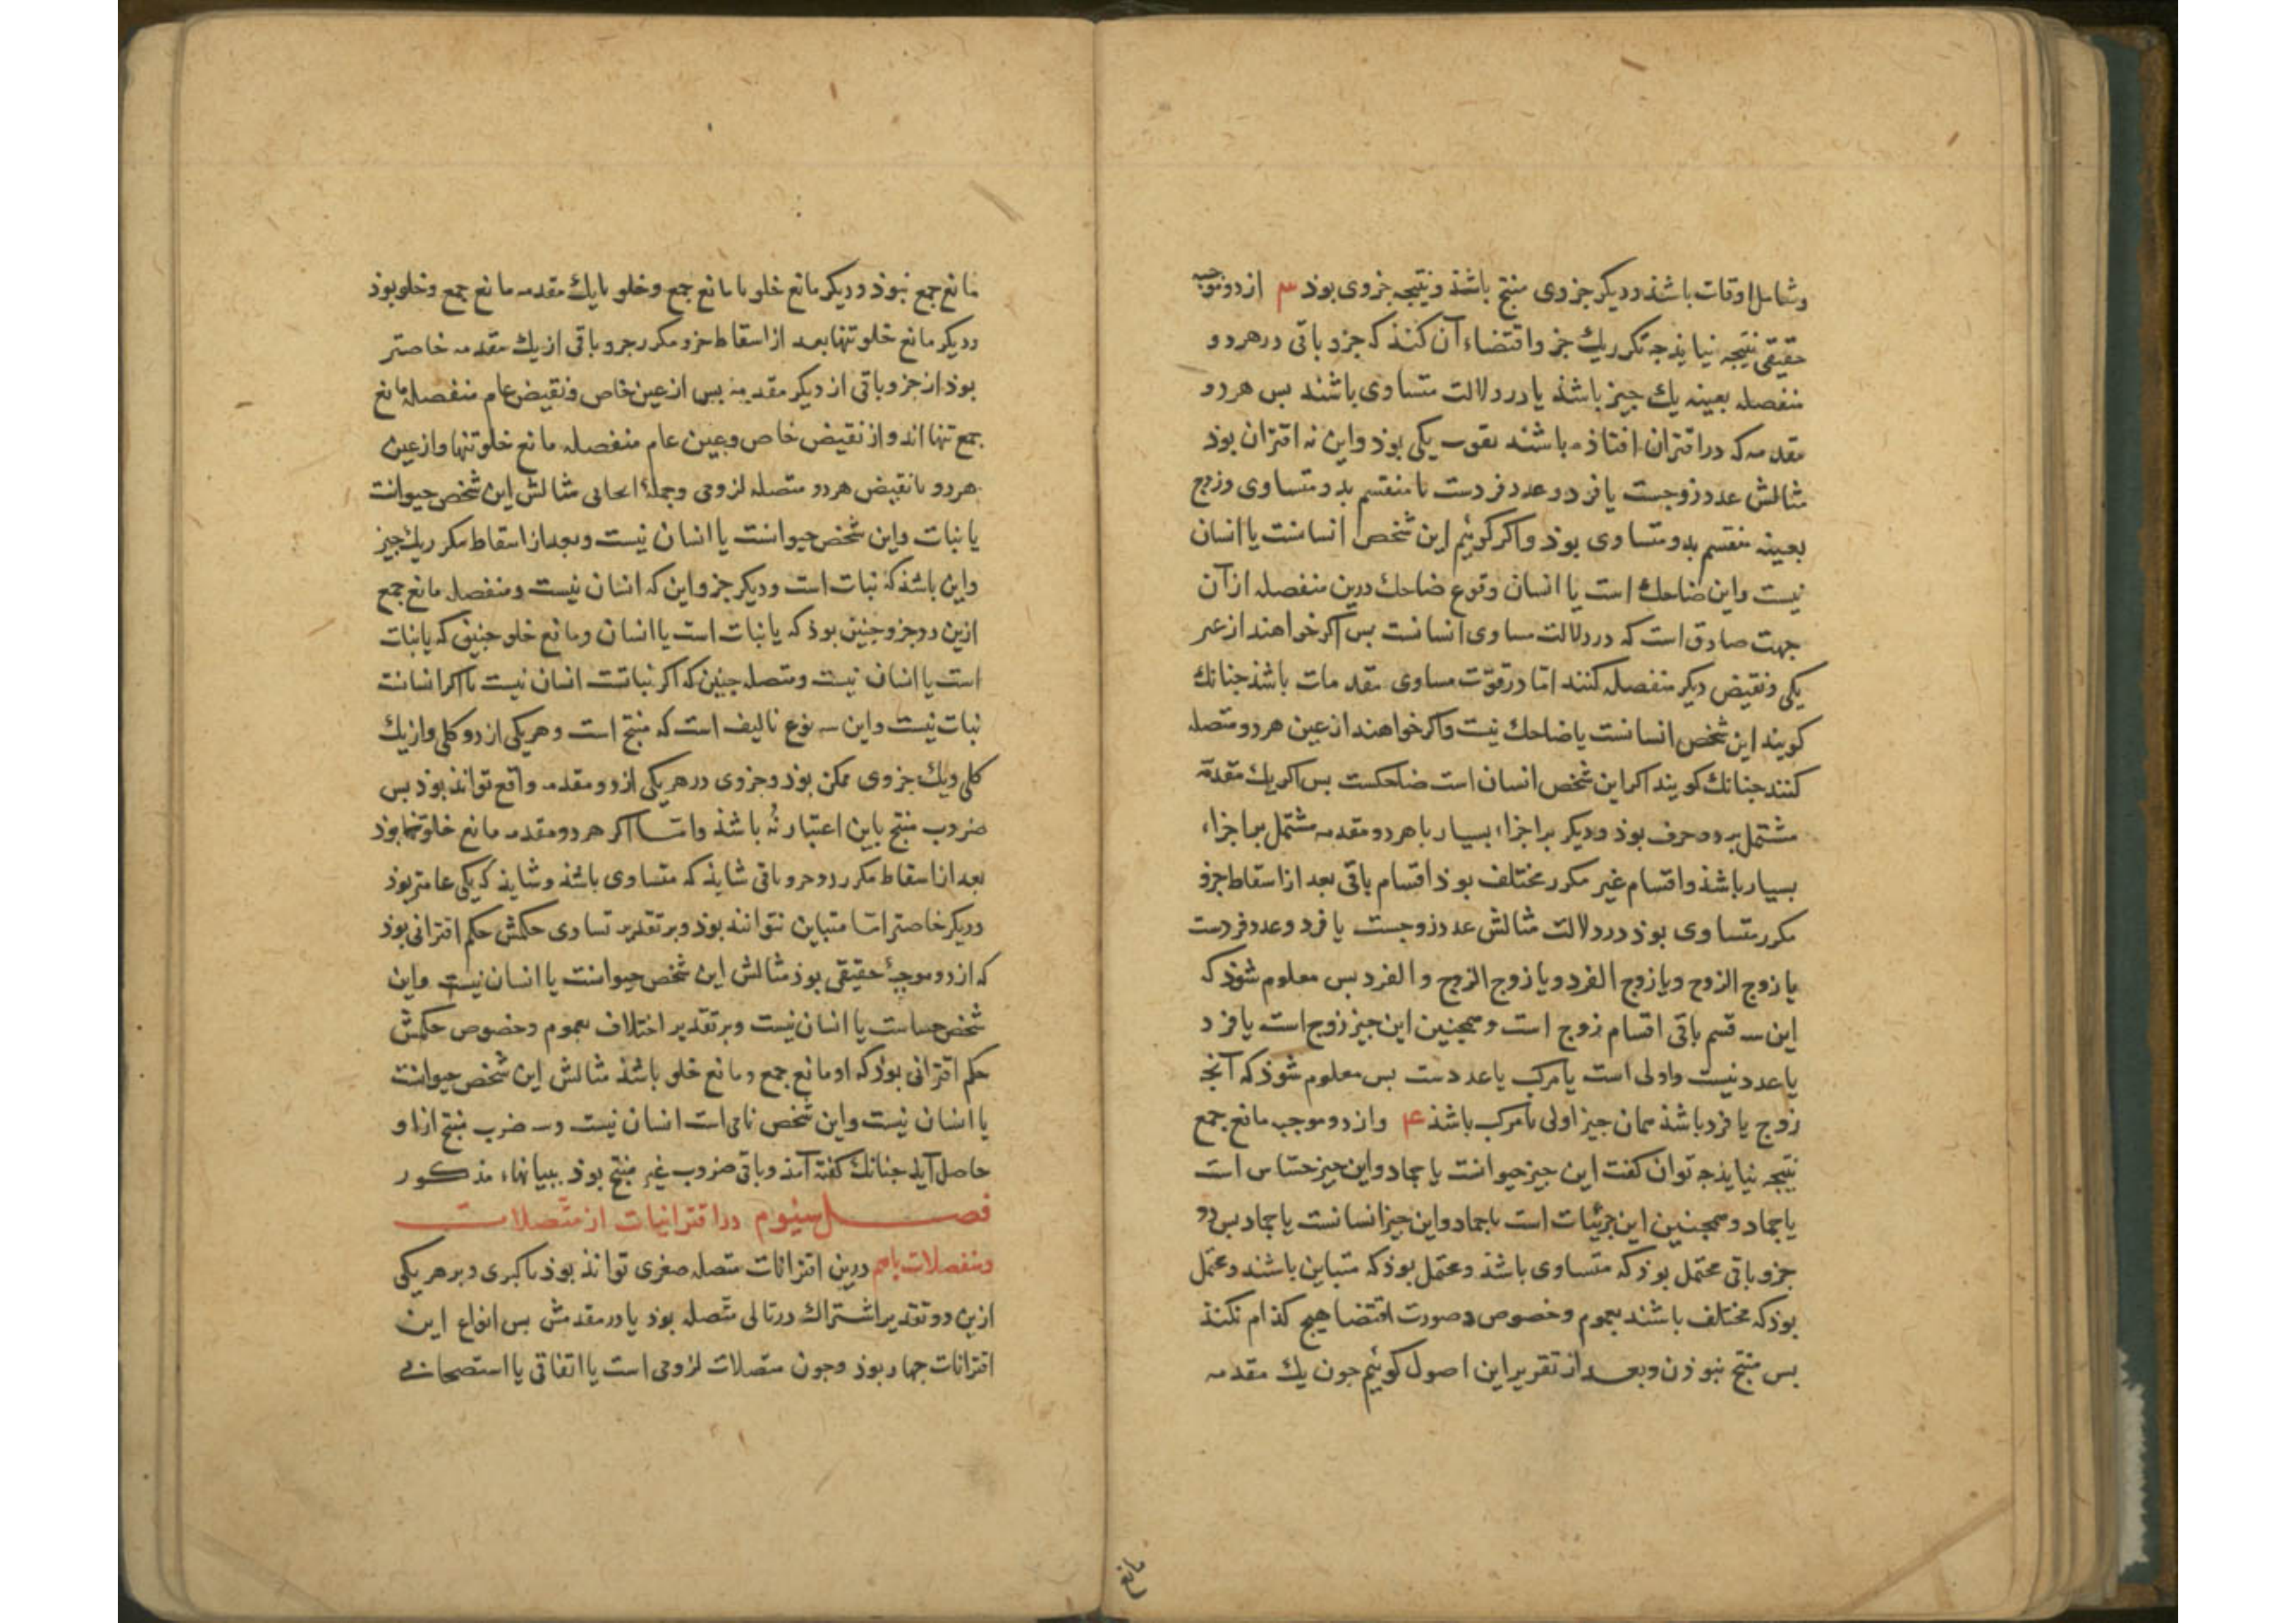 وشامل اوقات باشذ ودیکر جزوی منتج باشذ ونتیجه جزوی بوذ ۳ از دو موجبه
حقیقی نتیجه نیایذ جه تکرر یك جزو اقتضاء آن کنذ که جزو باقی در هر دو
منفصله بعینه یك جیز باشذ یا در دلالت متساوی باشند بس هر دو
مقدمه که در اقتران افتاذه باشند بقوت یکی بوذ واین نه اقتران بوذ
مثالش عدد زوجست یا فرد وعدد فردست یا منقسم بدو متساوی وزوج
بعینه منقسم بدو متساوی بوذ واکر کوئیم این شخص انسانست یا انسان
نیست واین ضاحك است یا انسان وقوع ضاحك درین منفصله از آن
جهت صادق است که در دلالت مساوی انسانست بس اکر خواهند از عین
یکی ونقیض دیکر منفصله کنند اما در قوّت مساوی مقدمات باشذ جنانك
کویند این شخص انسانست یا ضاحك نیست واکر خواهند از عین هر دو متصله
کنند جنانك کویند اکر این شخص انسان است ضاحکست بس اکر یك مقدمه
مشتمل بر دو حرف بوذ ودیکر بر اجزاء بسیار یا هر دو مقدمه مشتمل بر اجزاء
بسیار باشذ واقسام غیر مکرر مختلف بوذ اقسام باقی بعد از اسقاط جزو
مکرر متساوی بوذ در دلالت مثالش عدد زوجست یا فرد وعدد فردست
یا زوج الزوج ویا زوج الفرد ویا زوج الزوج والفرد بس معلوم شوذ که
این سه قسم باقی اقسام زوج است وهمجنین این جیز زوج است یا فرد
یا عدد نیست واولی است یا مرکب یا عددست بس معلوم شوذ که آنجه
زوج یا فرد باشذ همان جیز اولی یا مرکب باشذ ۴ واز دو موجب مانع جمع
نتیجه نیایذ جه توان کفت این جیز حیوانست یا جماد واین جیز حساس است
یا جماد وهمجنین این جزئیات است یا جماد واین جیز انسانست یا جماد بس دو
جزو باقی محتمل بوذ که متساوی باشذ ومحتمل بوذ که متباین باشند ومحتمل
بوذ که مختلف باشند بعموم وخصوص وصورت اقتضا هیج کذام نکنذ
بس منتج نبوذ ن وبعد از تقریر این اصول کوئیم جون یك مقدمه
مانع جمع نبوذ ودیکر مانع خلو یا مانع جمع وخلو یا یك مقدمه مانع جمع وخلو بوذ
ودیکر مانع خلو تنها بعد از اسقاط جزو مکرر جزو باقی از یك مقدمه خاصتر
بوذ از جزو باقی از دیکر مقدمه بس از عین خاص ونقیض عام منفصلهٔ مانع
جمع تنها اند واز نقیض خاص وعین عام منفصله مانع خلو تنها واز عین
هر دو یا نقیض هر دو متصله لزومی وجملهٔ ایجابی مثالش این شخص حیوانست
یا نبات واین شخص حیوانست یا انسان نیست وبعد از اسقاط مکرر یك جیز
واین باشذ که نبات است ودیکر جزو این که انسان نیست ومنفصله مانع جمع
ازین دو جزو جنین بوذ که یا نبات است یا انسان ومانع خلو جنین که یا نبات
است یا انسان نیست ومتصله جنین که اکر نباتست انسان نیست یا اکر انسانست
نبات نیست واین سه نوع تالیف است که منتج است وهر یکی از دو کلی واز یك
کلی ویك جزوی ممکن بوذ وجزوی در هر یکی از دو مقدمه واقع تواند بوذ بس
ضروب منتج باین اعتبار نُه باشذ وامّا اکر هر دو مقدمه مانع خلو تنها بوذ
بعد از اسقاط مکرر دو جزو باقی شایذ که متساوی باشذ وشایذ که یکی عامتر بوذ
ودیکر خاصتر امّا متباین نتوانند بوذ وبر تقدیر تساوی حکمش حکم اقترانی بوذ
که از دو موجبهٔ حقیقی بوذ مثالش این شخص حیوانست یا انسان نیست واین
شخص حساست یا انسان نیست وبر تقدیر اختلاف بعموم وخصوص حکمش
حکم اقترانی بوذ که او مانع جمع ومانع خلو باشذ مثالش این شخص حیوانست
یا انسان نیست واین شخص نامی است انسان نیست وسه ضرب منتج ازاو
حاصل آیذ جنانك کفته آمذ وباقی ضروب غیر منتج بوذ ببیانهاء مذکور
فصل سیوم در اقترانیات از متّصلات
ومنفصلات باهم درین اقترانات متصله صغری تواند بوذ یا کبری وبر هر یکی
ازین دو تقدیر اشتراك در تالی متّصله بوذ یا در مقدمش بس انواع این
اقترانات جهار بوذ وجون متصلات لزومی است یا اتفاقی یا استصحابی